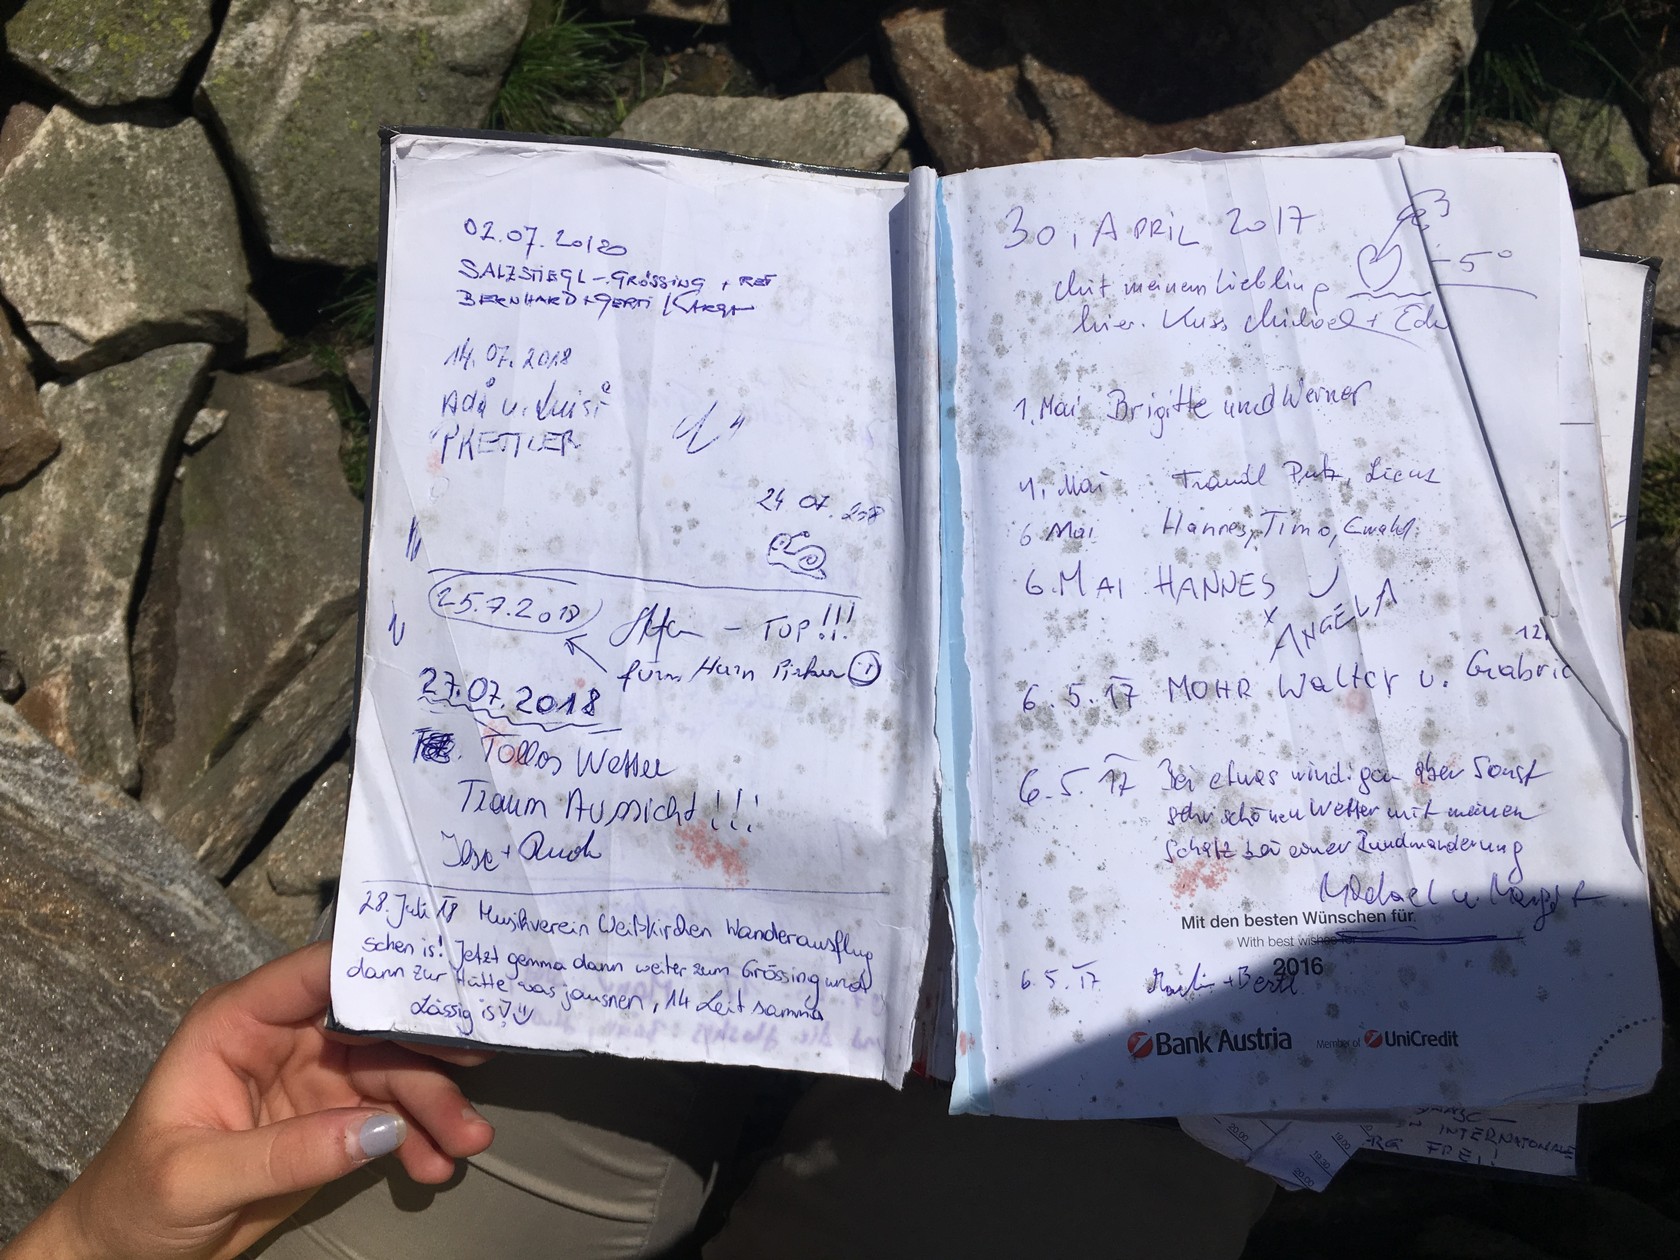 02.07.2018
SALZSTIEGL - GRÖSSING + RET
BERNHARD + GERTI
14.07.2018
Adi u. Luisi
PKETTLER
24 07. 2018
25.7.2018
– TOP!!!
fürn Herrn
27.07.2018
Tolles Wetter
Traum Aussicht!!!
28. Juli 18 Musikverein Weißkirchen Wanderausflug
schen is! Jetzt gemma dann weiter zum Grössing und
dann zur Hütte was jausnen, 14 Leit samma
Lässig is!
30. APRIL 2017
-5°
Mit meinem Liebling
hier. Kuss Michael + Edi
1. Mai Brigitte und Werner
4. Mai Traudl Putz,
6 Mai Hannes, Timo, Ewald
6. MAI HANNES
ANGELA
6.5.17 MOHR Walter u. Gabrie
6.5.17 Bei etwas windigen aber Sonst
sehr schönen Wetter mit meinen
Schatz bei einer Rundwanderung
Michael u. Margit
Mit den besten Wünschen für
With best wishes for
2016
6.5.17 + Bertl
Bank Austria Member of UniCredit
INTERNATIONALE
FREI!
20.00
19.00
19.30
20.00